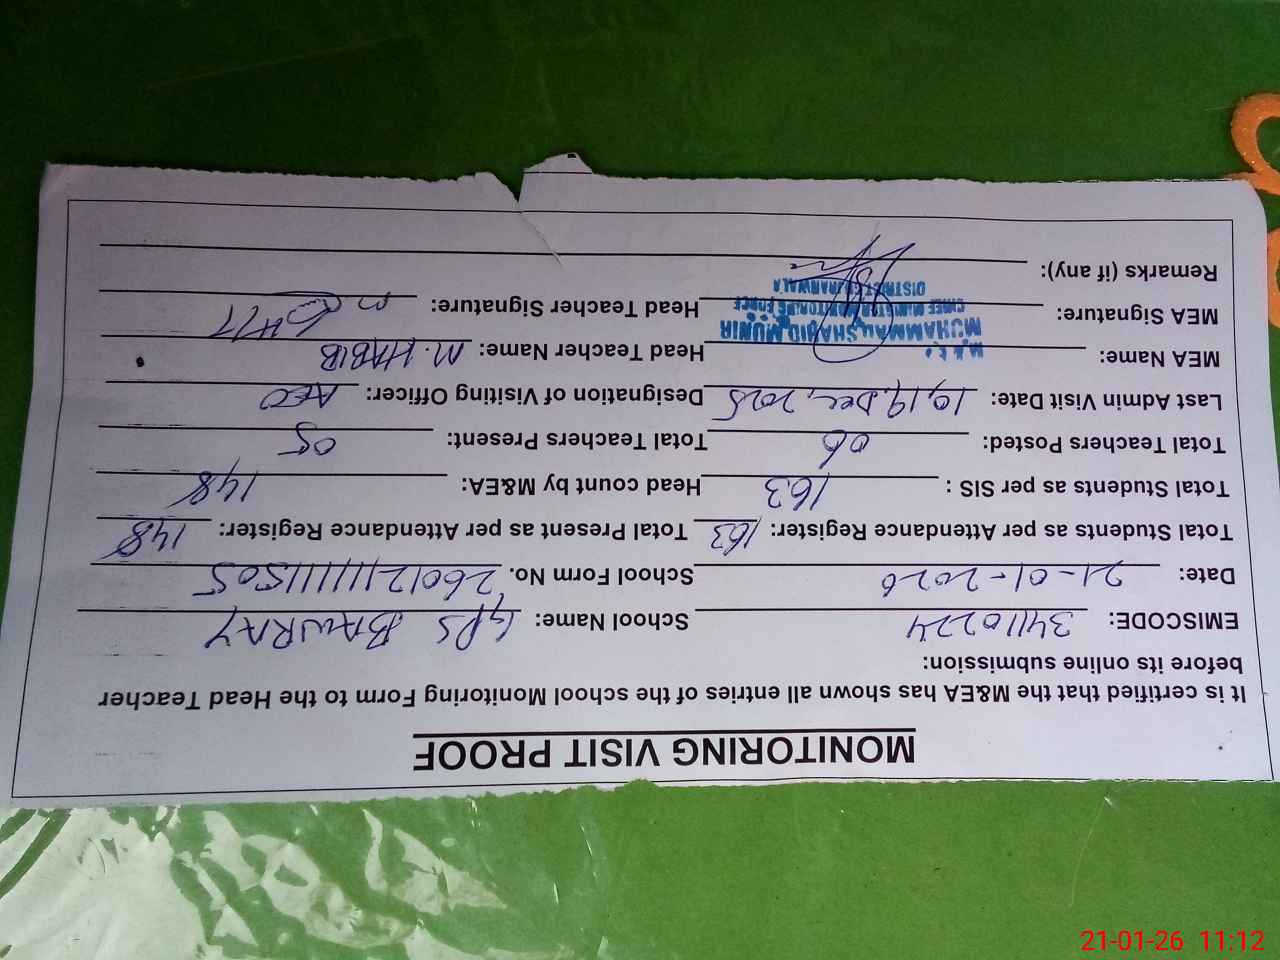 MONITORING VISIT PROOF
It is certified that the M&EA has shown all entries of the school Monitoring Form to the Head Teacher
before its online submission:
EMISCODE: 34110224 School Name: GPS BAWRAY
Date: 21-01-2026 School Form No.
Total Students as per Attendance Register: 163 Total Present as per Attendance Register: 148
Total Students as per SIS : 163 Head count by M&EA: 148
Total Teachers Posted: 06 Total Teachers Present: 05
Last Admin Visit Date: 10,19, Dec, 2025 Designation of Visiting Officer: AEO
MEA Name: Head Teacher Name: M. HABIB
MUHAMMAD SHAHID MUNIR
MEA Signature: Head Teacher Signature:
CHIEF MINISTER MONITORING FORCE
DISTRICT GUJRANWALA
Remarks (if any):
21-01-26 11:12